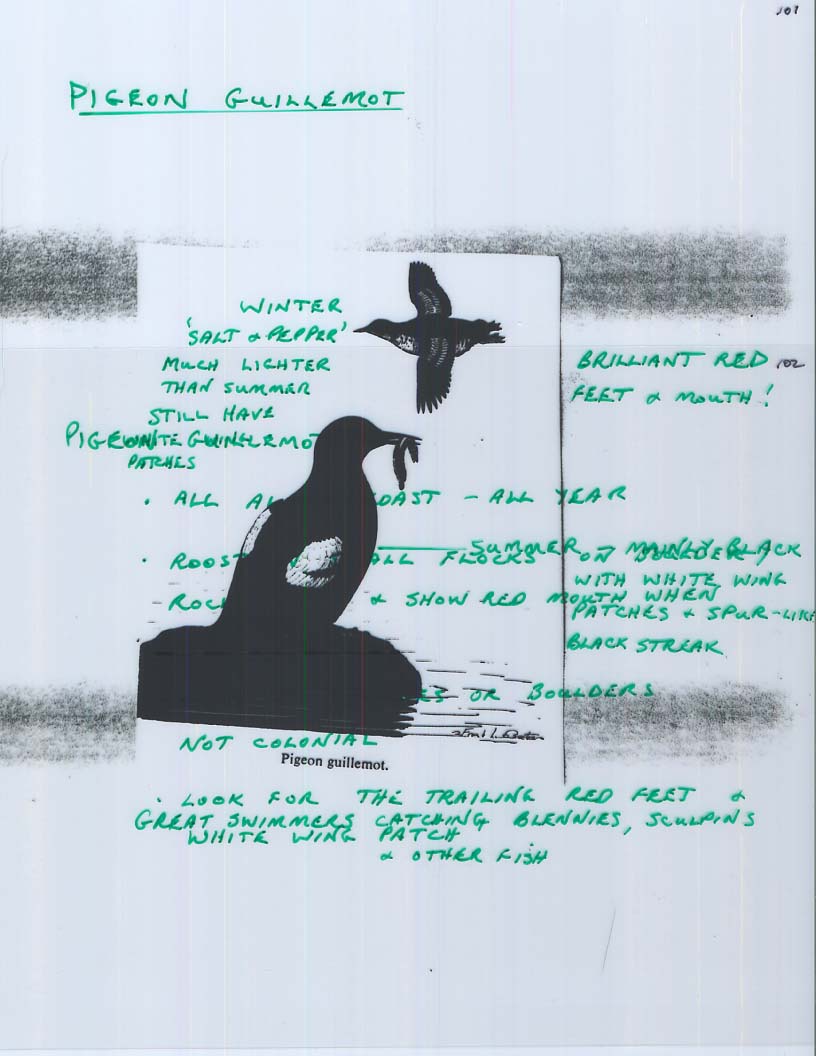 101
PIGEON GUILLEMOT
WINTER
'SALT & PEPPER'
MUCH LIGHTER
THAN SUMMER
STILL HAVE
WHITE WING
PIGEON GUILLEMOT
PATCHES
BRILLIANT RED 102
FEET & MOUTH!
· ALL COAST - ALL YEAR
SUMMER - MAINLY BLACK
WITH WHITE WING
PATCHES & SPUR-LIKE
BLACK STREAK
· ROOST ALL FLOCKS ON BOULDERS
& SHOW RED MOUTH WHEN
OR BOULDERS
NOT COLONIAL
Pigeon guillemot.
· LOOK FOR THE TRAILING RED FEET &
WHITE WING PATCH
GREAT SWIMMERS CATCHING BLENNIES, SCULPINS
& OTHER FISH